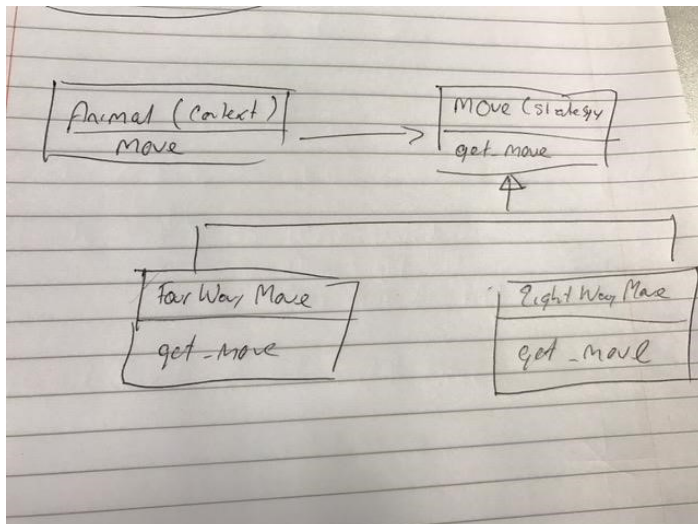 Animal (Context)
Move
Move (Strategy
get_move
Four Way Move
get_move
Eight Way Move
get_move